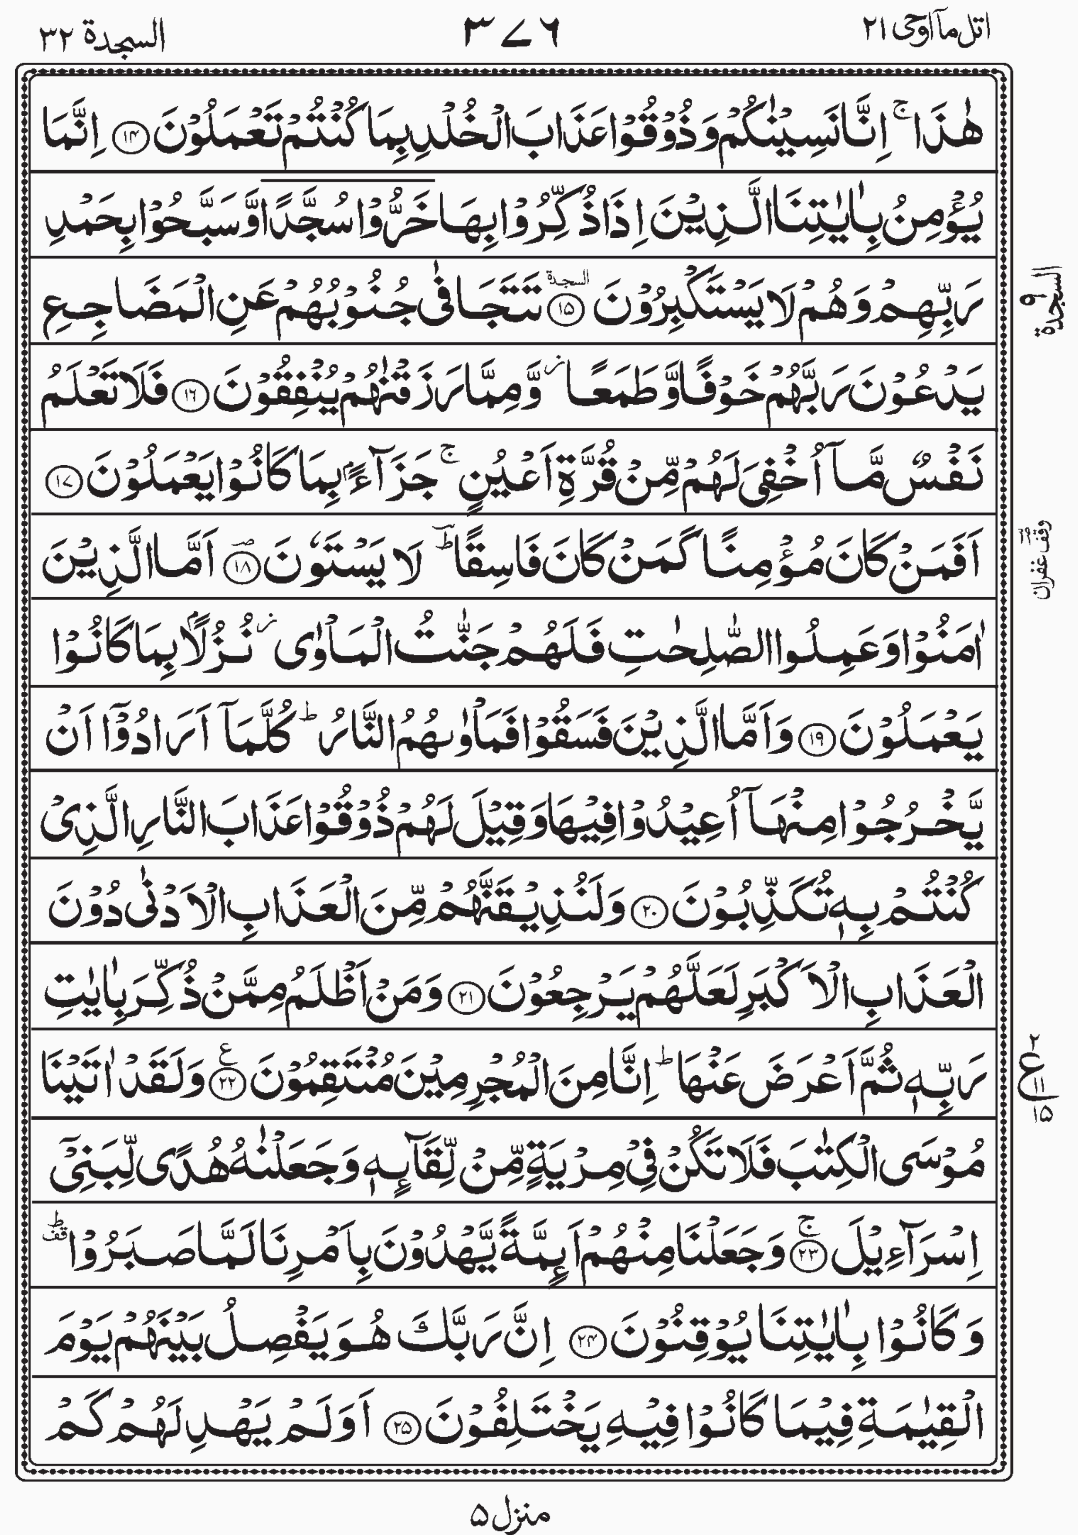 اتل ماۤ اوحی ۲۱
۳۷۶
السجدة ۳۲
هٰذَا ۚ اِنَّا نَسِیْنٰكُمْ وَ ذُوْقُوْا عَذَابَ الْخُلْدِ بِمَا كُنْتُمْ تَعْمَلُوْنَ ﴿۱۴﴾ اِنَّمَا
یُؤْمِنُ بِاٰیٰتِنَا الَّذِیْنَ اِذَا ذُكِّرُوْا بِهَا خَرُّوْا سُجَّدًا وَّ سَبَّحُوْا بِحَمْدِ
رَبِّهِمْ وَ هُمْ لَا یَسْتَكْبِرُوْنَ ﴿۱۵﴾ السجدة تَتَجَافٰی جُنُوْبُهُمْ عَنِ الْمَضَاجِعِ
یَدْعُوْنَ رَبَّهُمْ خَوْفًا وَّ طَمَعًا ؗ وَّ مِمَّا رَزَقْنٰهُمْ یُنْفِقُوْنَ ﴿۱۶﴾ فَلَا تَعْلَمُ
نَفْسٌ مَّاۤ اُخْفِیَ لَهُمْ مِّنْ قُرَّةِ اَعْیُنٍ ۚ جَزَآءًۢ بِمَا كَانُوْا یَعْمَلُوْنَ ﴿۱۷﴾
اَفَمَنْ كَانَ مُؤْمِنًا كَمَنْ كَانَ فَاسِقًا ؕ لَا یَسْتَوٗنَ ﴿۱۸﴾ اَمَّا الَّذِیْنَ
اٰمَنُوْا وَ عَمِلُوا الصّٰلِحٰتِ فَلَهُمْ جَنّٰتُ الْمَاْوٰی ؗ نُزُلًۢا بِمَا كَانُوْا
یَعْمَلُوْنَ ﴿۱۹﴾ وَ اَمَّا الَّذِیْنَ فَسَقُوْا فَمَاْوٰىهُمُ النَّارُ ؕ كُلَّمَاۤ اَرَادُوْۤا اَنْ
یَّخْرُجُوْا مِنْهَاۤ اُعِیْدُوْا فِیْهَا وَ قِیْلَ لَهُمْ ذُوْقُوْا عَذَابَ النَّارِ الَّذِیْ
كُنْتُمْ بِهٖ تُكَذِّبُوْنَ ﴿۲۰﴾ وَ لَنُذِیْقَنَّهُمْ مِّنَ الْعَذَابِ الْاَدْنٰی دُوْنَ
الْعَذَابِ الْاَكْبَرِ لَعَلَّهُمْ یَرْجِعُوْنَ ﴿۲۱﴾ وَ مَنْ اَظْلَمُ مِمَّنْ ذُكِّرَ بِاٰیٰتِ
رَبِّهٖ ثُمَّ اَعْرَضَ عَنْهَا ؕ اِنَّا مِنَ الْمُجْرِمِیْنَ مُنْتَقِمُوْنَ ﴿۲۲﴾ ع وَ لَقَدْ اٰتَیْنَا
مُوْسَی الْكِتٰبَ فَلَا تَكُنْ فِیْ مِرْیَةٍ مِّنْ لِّقَآىِٕهٖ وَ جَعَلْنٰهُ هُدًی لِّبَنِیْۤ
اِسْرَآءِیْلَ ﴿۲۳﴾ۚ وَ جَعَلْنَا مِنْهُمْ اَىِٕمَّةً یَّهْدُوْنَ بِاَمْرِنَا لَمَّا صَبَرُوْا ؕ۫ قف
وَ كَانُوْا بِاٰیٰتِنَا یُوْقِنُوْنَ ﴿۲۴﴾ اِنَّ رَبَّكَ هُوَ یَفْصِلُ بَیْنَهُمْ یَوْمَ
الْقِیٰمَةِ فِیْمَا كَانُوْا فِیْهِ یَخْتَلِفُوْنَ ﴿۲۵﴾ اَوَ لَمْ یَهْدِ لَهُمْ كَمْ
السجدة ۹
وقف غفران
ع ۲ ۱۱ ۱۵
منزل ۵